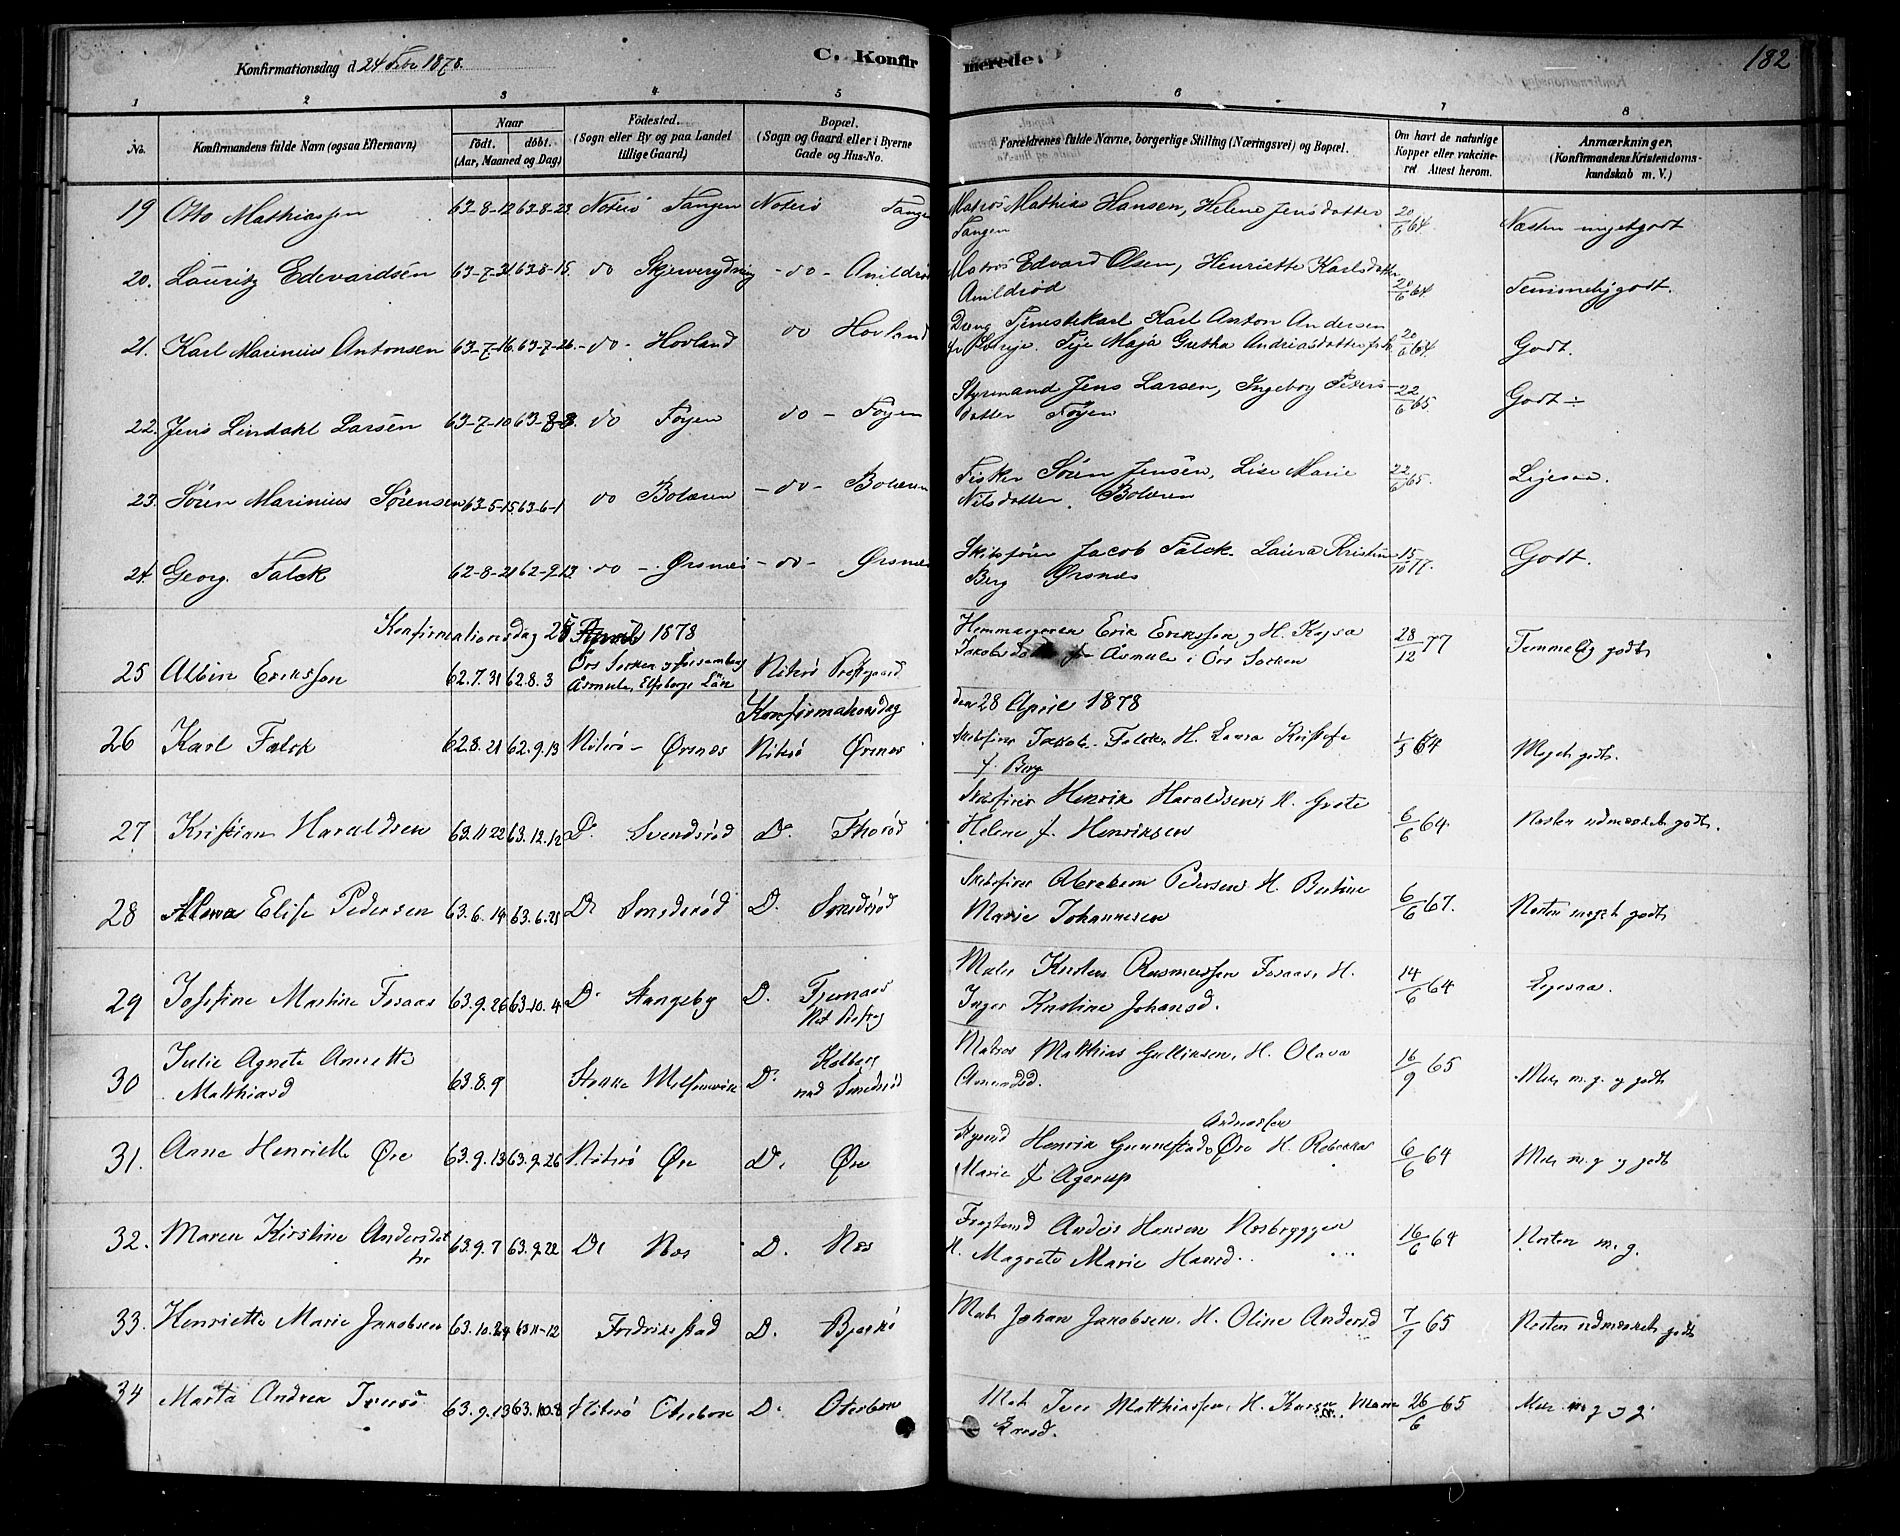 182
Konfirmationsdag d. 24 Febr 1878.
C. Konfirmerede.
1 2 3 4 5 6 7 8
No.
Konfirmandens fulde Navn (ogsaa Efternavn)
Naar
født. døbt.
(Aar, Maaned og Dag)
Fødested.
(Sogn eller By og paa Landet
tillige Gaard)
Bopæl.
(Sogn og Gaard eller i Byerne
Gade og Hus-No.
Forældrenes fulde Navne, borgerlige Stilling (Næringsvei) og Bopæl.
Om havt de naturlige
Kopper eller vakcine-
ret Attest herom.
Anmærkninger.
(Konfirmandens Kristendoms-
kundskab m. V.)
19 Otto Mathiassen 63-8-12 63-8-23 Noterø Tangen Noterø Tangen Matros Mathias Hansen, Helene Jensdatter 20/6 64. Næsten megetgodt
Tangen
20. Lauritz Edevardsen 63-7-21 63-8-15 do - do - Matros Edvard Olsen, Henriette Karlsdatter 20/6 64. Temmeligodt.
21. Karl Marinius Antonsen 63-7-16 63-7-26 - do - Hovland do Hovland Tjenestekarl Karl Anton Andersen 20/6 64. Godt.
Pige Maja Gretha Andriasdatter
22. Jens Lindahl Larsen 63-7-10 63-8-8. do Føyen do - Føyen Styrmand Jens Larsen, Ingeborg Peders- 22/6 65 Godt ÷
datter Føyen
23. Søren Marinius Sørensen 63-5-15 63-6-1 do Bolæren - do - Bolæren Fisker Søren Jensen, Lise Marie 22/6 65. Ligesaa.
Nilsdatter. Bolæren
24. Georg Falck 62-8-21 62-9-13. do - Ørsnes - do - Ørsnes Skibsfører Jacob Falck. Laura Kristine 15/10 77. Godt.
Berg Ørsnes
Konfirmationsdag 28 April 1878
25 Albin Eriksson 62.7.31 62.8.3 Ørs Socken Elfsborgs Län Nøterø Prestgaard Hemmansegaren Erik Eriksson og H. Kajsa 28/12 77 Temmelig godt
i Örs Socken
Konfirmationsdag den 28 April 1878
26 Karl Falck 62.8.21 62.9.13 Nøterø - Ørsnes Nøterø Ørsnes Skibsfører Jakob Falck, H. Laura Kristofa 1/5 64 Meget godt.
f. Berg
27 Kristian Haraldsen 63.11.22 63.12.12 Do. Svendsrød Do. Thorød Skibsfører Henrik Haraldsen, H. Grete 6/6 64. Næsten udmærket godt.
Helene f. Henriksen
28 Elise Pedersen 63.6.14 63.6.21 Do Smedsrød D. Smedsrød Skibsfører Abraham Pedersen, H. Bertine 6/6 67. Næsten meget godt
Marie Johannesen
29 Josefine Martine Foraas 63.9.26 63.10.4 Do Stangeby D. Tjernaas Kristen Rasmussen Foraas, H. 14/6 64 Ligesaa.
Inger Kristine Johansd.
30 Julie Agnete Annette 63.8.9 Stokke Melsomvik D. Kolberg Matros Matthias Gulliksen, H. Olava 16/9 65 Mell. m. g. og godt
Matthiasd ved Smedsrød Amundsd.
31. Anne Henriette Øre 63.9.13 63.9.26 Nøterø Øre D. Øre Styrmd Henrik Gunnestad Andreassen Øre H. Rebekka 6/6 64 Mell. m. g og godt
Marie f. Agerup
32. Maren Kirstine Andersdat 63.9.7 63.9.22 Do Næs D. Næs Anders Hansen Næsbryggen 16/6 64 Næsten m. g.
ter H. Magrete Marie Hansd.
33. Henriette Marie Jakobsen 63.10.24 63 11-12 Fredrikstad D. Bjerkø Mat. Johan Jakobsen, H. Oline Andersd 7/7 65 Næsten udmærket godt
34 Marta Andrea Iversd 63.9.13 63.10.8 Nøterø Oterbæk D. Oterbæk Mat. Iver Matthiassen, H. Karen Marie 26/6 65 Mell. m g og g.